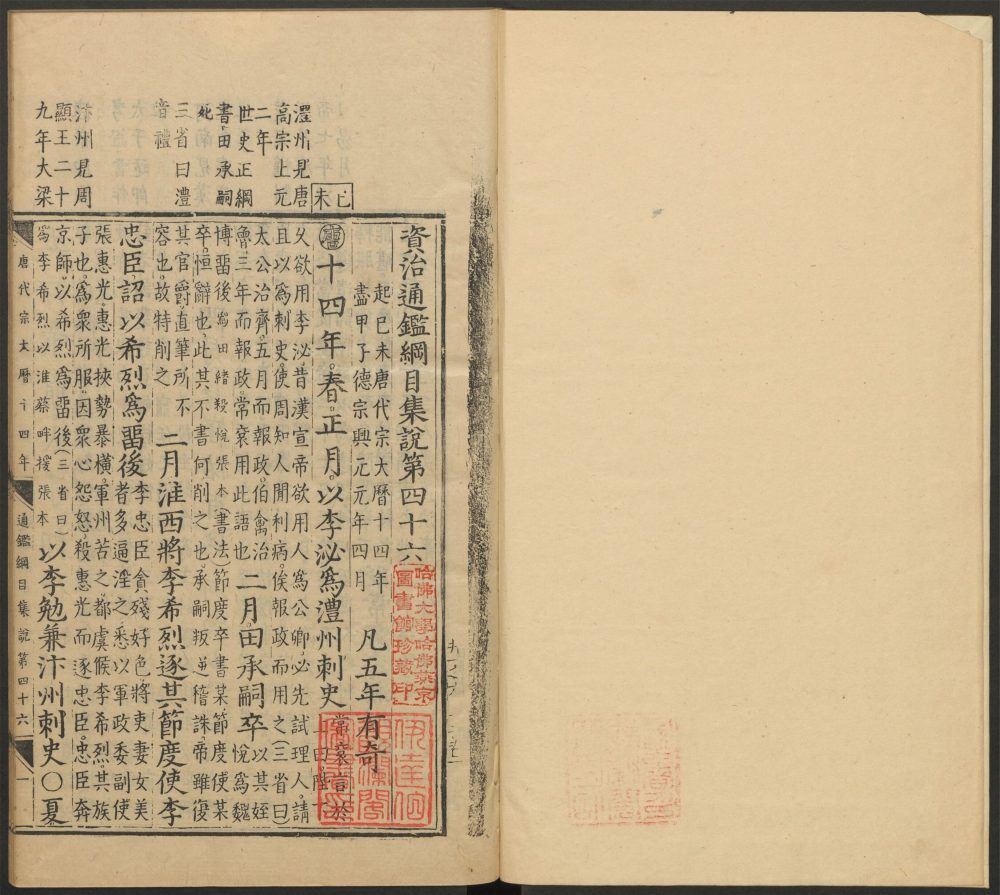 澧州見唐
高宗上元
二年
世史正綱
書田承嗣
死
三省曰澧
音禮
汴州見周
顯王二十
九年大梁
己未
資治通鑑綱目集說第四十六
起己未唐代宗大曆十四年
盡甲子德宗興元元年四月
凡五年有奇
十四年春正月以李泌爲澧州刺史
常袞言於
上曰陛下
久欲用李泌昔漢宣帝欲用人爲公卿必先試理人請
且以爲刺史使周知人閒利病俟報政而用之(三省曰
太公治齊五月而報政伯禽治
魯三年而報政常袞用此語也
二月田承嗣卒
以其姪
悅爲魏
博畱後爲田緒殺悅張本(書法)節度卒書某節度使某
卒恒辭也此其不書何削之也承嗣叛逆稽誅帝雖復
其官爵直筆所不
容也故特削之
二月淮西將李希烈逐其節度使李
忠臣詔以希烈爲畱後
李忠臣貪殘好色將吏妻女美
者多逼淫之悉以軍政委副使
張惠光惠光挾勢暴橫軍州苦之都虞候李希烈其族
子也爲衆所服因衆心怨怒殺惠光而逐忠臣忠臣奔
京師以希烈爲畱後(三省曰)
爲李希烈以淮蔡畔援張本
以李勉兼汴州刺史○夏
唐代宗大曆十四年
通鑑綱目集說第四十六
一
哈佛大學哈佛燕京
圖書館珍藏印